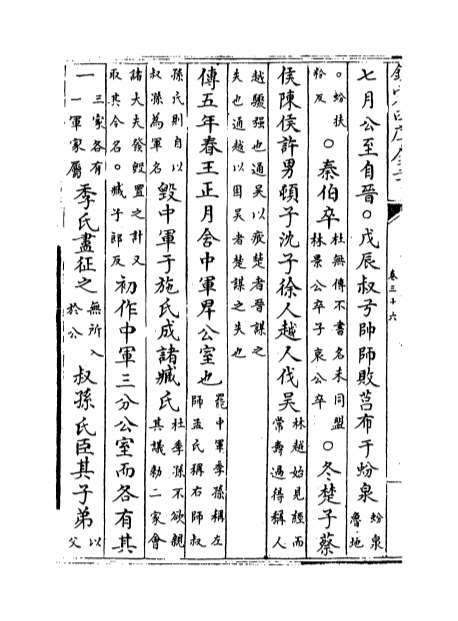 卷三十六
七月公至自晉。戊辰叔弓帥師敗莒布于蚡泉蚡泉魯地
。蚡扶粉反○秦伯卒杜無傳不書名未同盟林景公卒子哀公卒○冬楚子蔡
侯陳侯許男頓子沈子徐人越人伐吳林越始見經而常壽過得稱人
越驟强也通吳以疲楚者晉謀之失也通越以困吳者楚謀之失也
傳五年春王正月舍中軍卑公室也罷中軍季孫稱左師孟氏稱右師叔
孫氏則自以叔孫為軍名毀中軍于施氏成諸臧氏杜季孫不欲親其議勑二家會
諸大夫發毀置之計又取其令名。臧子郎反初作中軍三分公室而各有其
一三家各有一軍家屬季氏盡征之無所入於公叔孫氏臣其子弟以父